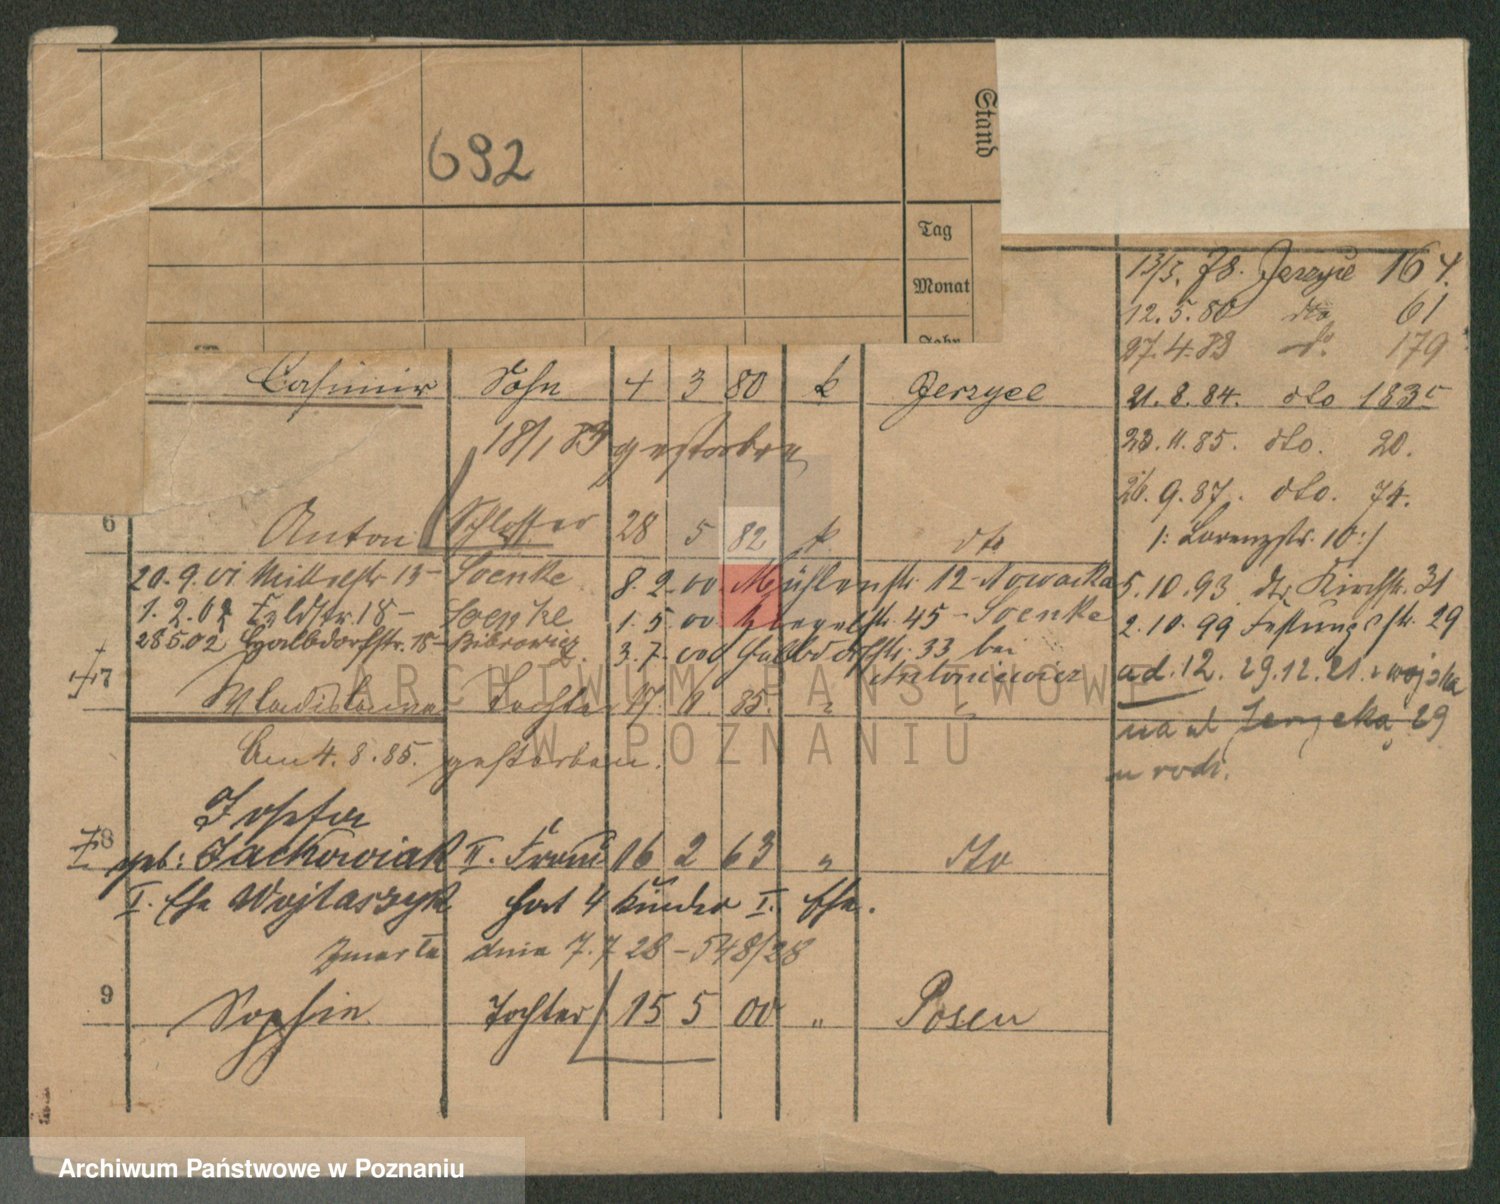 692
Stand
Tag
Monat
Jahr
Casimir Sohn 4 3 80 k Jerzyce
18/1 83 gestorben
6 Anton Schlosser 28 5 82 k. dto
20.9.01 Mittelstr 13 - Soenke
8.2.00 Mühlenstr 12 - Nowacka
1.2.02 Feldstr 18 - Soenke
1.5.00 45 - Soenke
28502 Halbdorfstr. 18 -
3.7.00 Halbdorfstr. 33 bei
Antoniewicz
7 Wladislawa Tochter 17. 85. " "
Am 4.8.85. gestorben.
Josefa
8 geb: Jackowiak II. Frau 16 2 63 " dto
I. Ehe Wojtaszyk hat 4 Kinder I. Ehe.
Zmarła dnia 7.7 28 - 548/28
9 Sophie Tochter 15 5 00 " Posen
13/3. 78. Jerzyce 164.
12.5.80 dto 61
27.4.83 do 179
21.8.84. dto 183c
23.11.85. dto. 20.
26.9.87. dto. 74.
1: Lorenzstr. 10:/
5.10.93 dto Kirchstr. 31
2.10.99 Festungsstr. 29
ad. 12. 29.12.21. z wojska
na ul Jerzyka 29
u rodz.
ARCHIWUM PAŃSTWOWE
W POZNANIU
Archiwum Państwowe w Poznaniu